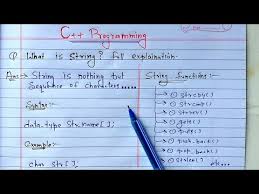 C++ Programming
Q. What is String? Full explaination.
Ans → String is nothing but
Sequence of characters.....
Syntax:-
data.type Str.name[];
Example:-
char str[];
String functions:-
→ ① strcpy()
→ ② strcmp()
→ ③ strcat()
→ ④ get()
→ ⑤ puts()
push.back()
push.back()
strlen() etc...